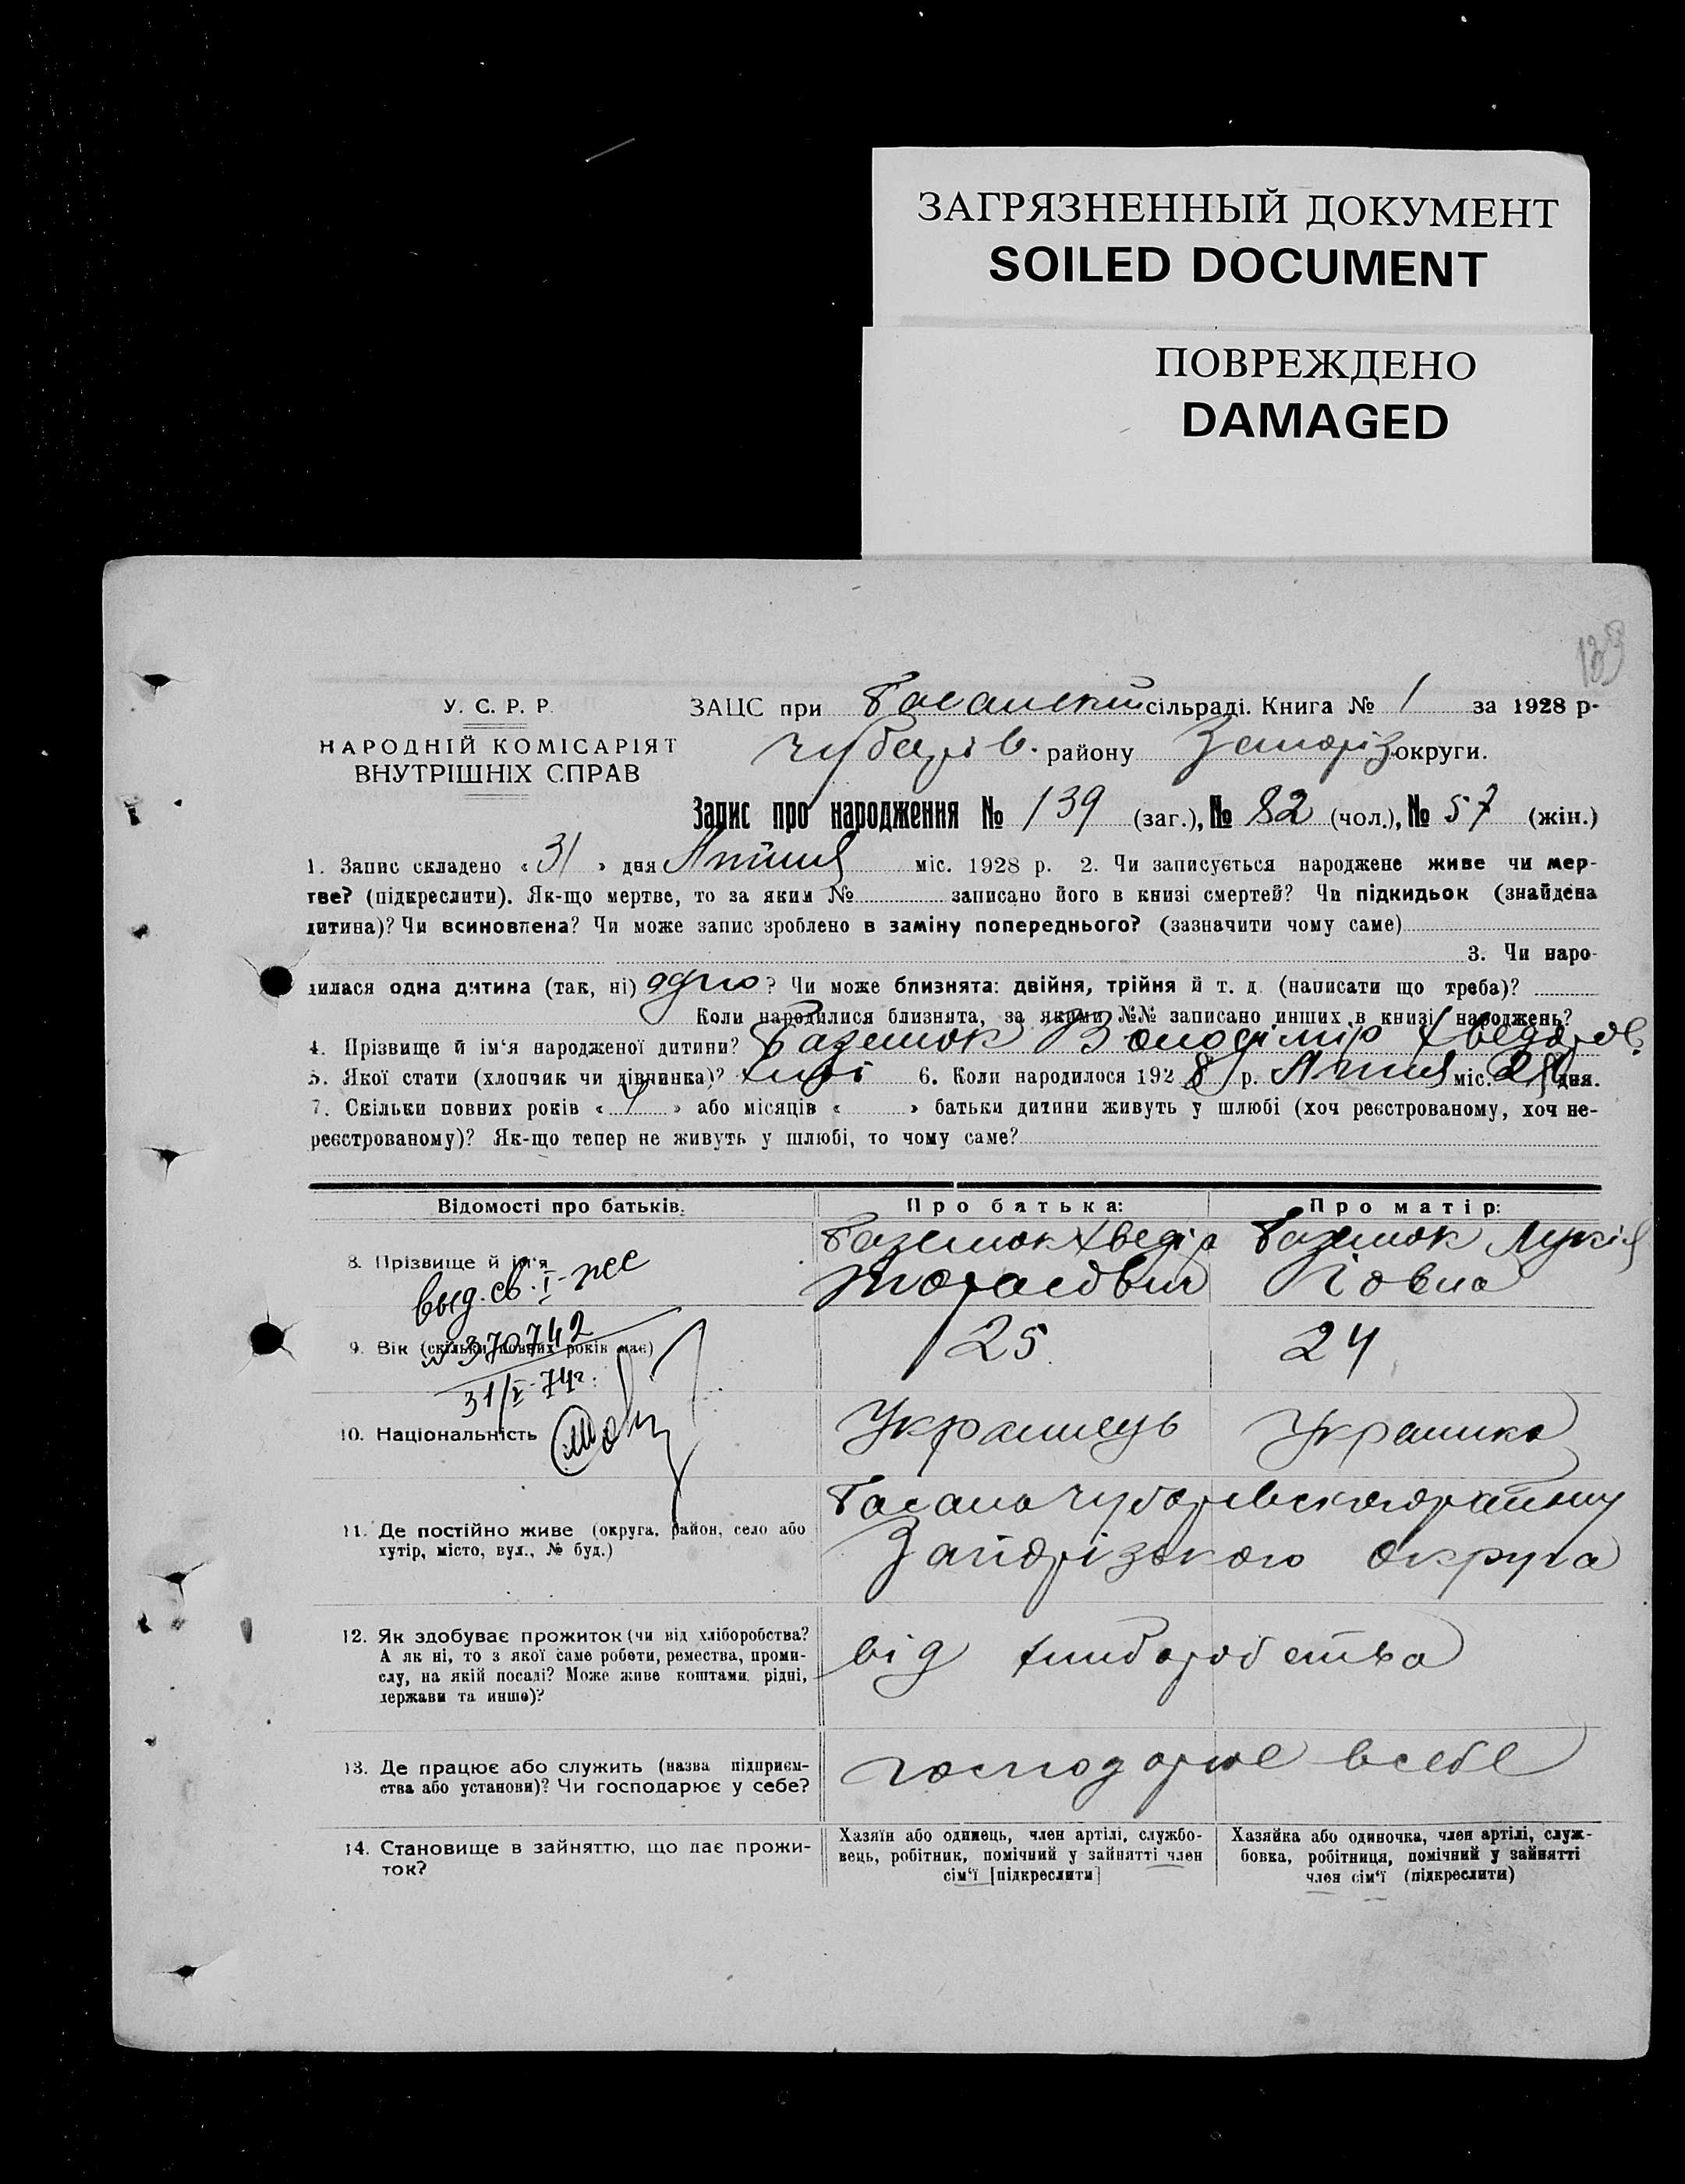 ЗАГРЯЗНЕННЫЙ ДОКУМЕНТ
SOILED DOCUMENT
ПОВРЕЖДЕНО
DAMAGED
133
У. С. Р. Р.
НАРОДНІЙ КОМІСАРІЯТ
ВНУТРІШНІХ СПРАВ
ЗАЦС при Басанский сільраді. Книга № 1 за 1928 р.
Чубарів. району Запоріз округи.
Запис про народження № 139 (заг.), № 82 (чол.), № 57 (жін.)
1. Запис складено « 31 » дня міс. 1928 р. 2. Чи записується народжене живе чи мер-
тве? (підкреслити). Як-що мертве, то за яким № записано його в книзі смертей? Чи підкидьок (знайдена
дитина)? Чи всиновлена? Чи може запис зроблено в заміну попереднього? (зазначити чому саме)
3. Чи наро-
дилася одна дитина (так, ні) одно ? Чи може близнята: двійня, трійня й т. д. (написати що треба)?
Коли народилися близнята, за якими №№ записано инших в книзі народжень?
4. Прізвище й ім'я народженої дитини? Володімір Хведоров.
5. Якої стати (хлопчик чи дівчинка)? 6. Коли народилося 192 8 р. міс. 28 дня.
7. Скільки повних років « 4 » або місяців « » батьки дитини живуть у шлюбі (хоч реєстрованому, хоч не-
реєстрованому)? Як-що тепер не живуть у шлюбі, то чому саме?
Відомості про батьків. Про батька: Про матір:
8. Прізвище й ім'я Хведір Лукія
Тарасович Іовна
выд. св. I-нее
9. Вік (скільки повних років має) 25 24
№ 370742
31/I-74г.
10. Національність Українець Українка
11. Де постійно живе (округа, район, село або
хутір, місто, вул., № буд.)
Басань Чубарівского району
Запорізского округа
12. Як здобуває прожиток (чи від хліборобства?
А як ні, то з якої саме роботи, ремества, проми-
слу, на якій посаді? Може живе коштами рідні,
держави та инше)?
від хліборобства
13. Де працює або служить (назва підприєм-
ства або установи)? Чи господарює у себе?
господарює всебе
14. Становище в зайняттю, що дає прожи-
ток?
Хазяїн або одинець, член артілі, службо-
вець, робітник, помічний у зайнятті член
сім'ї [підкреслити]
Хазяйка або одиночка, член артілі, служ-
бовка, робітниця, помічний у зайнятті
член сім'ї (підкреслити)